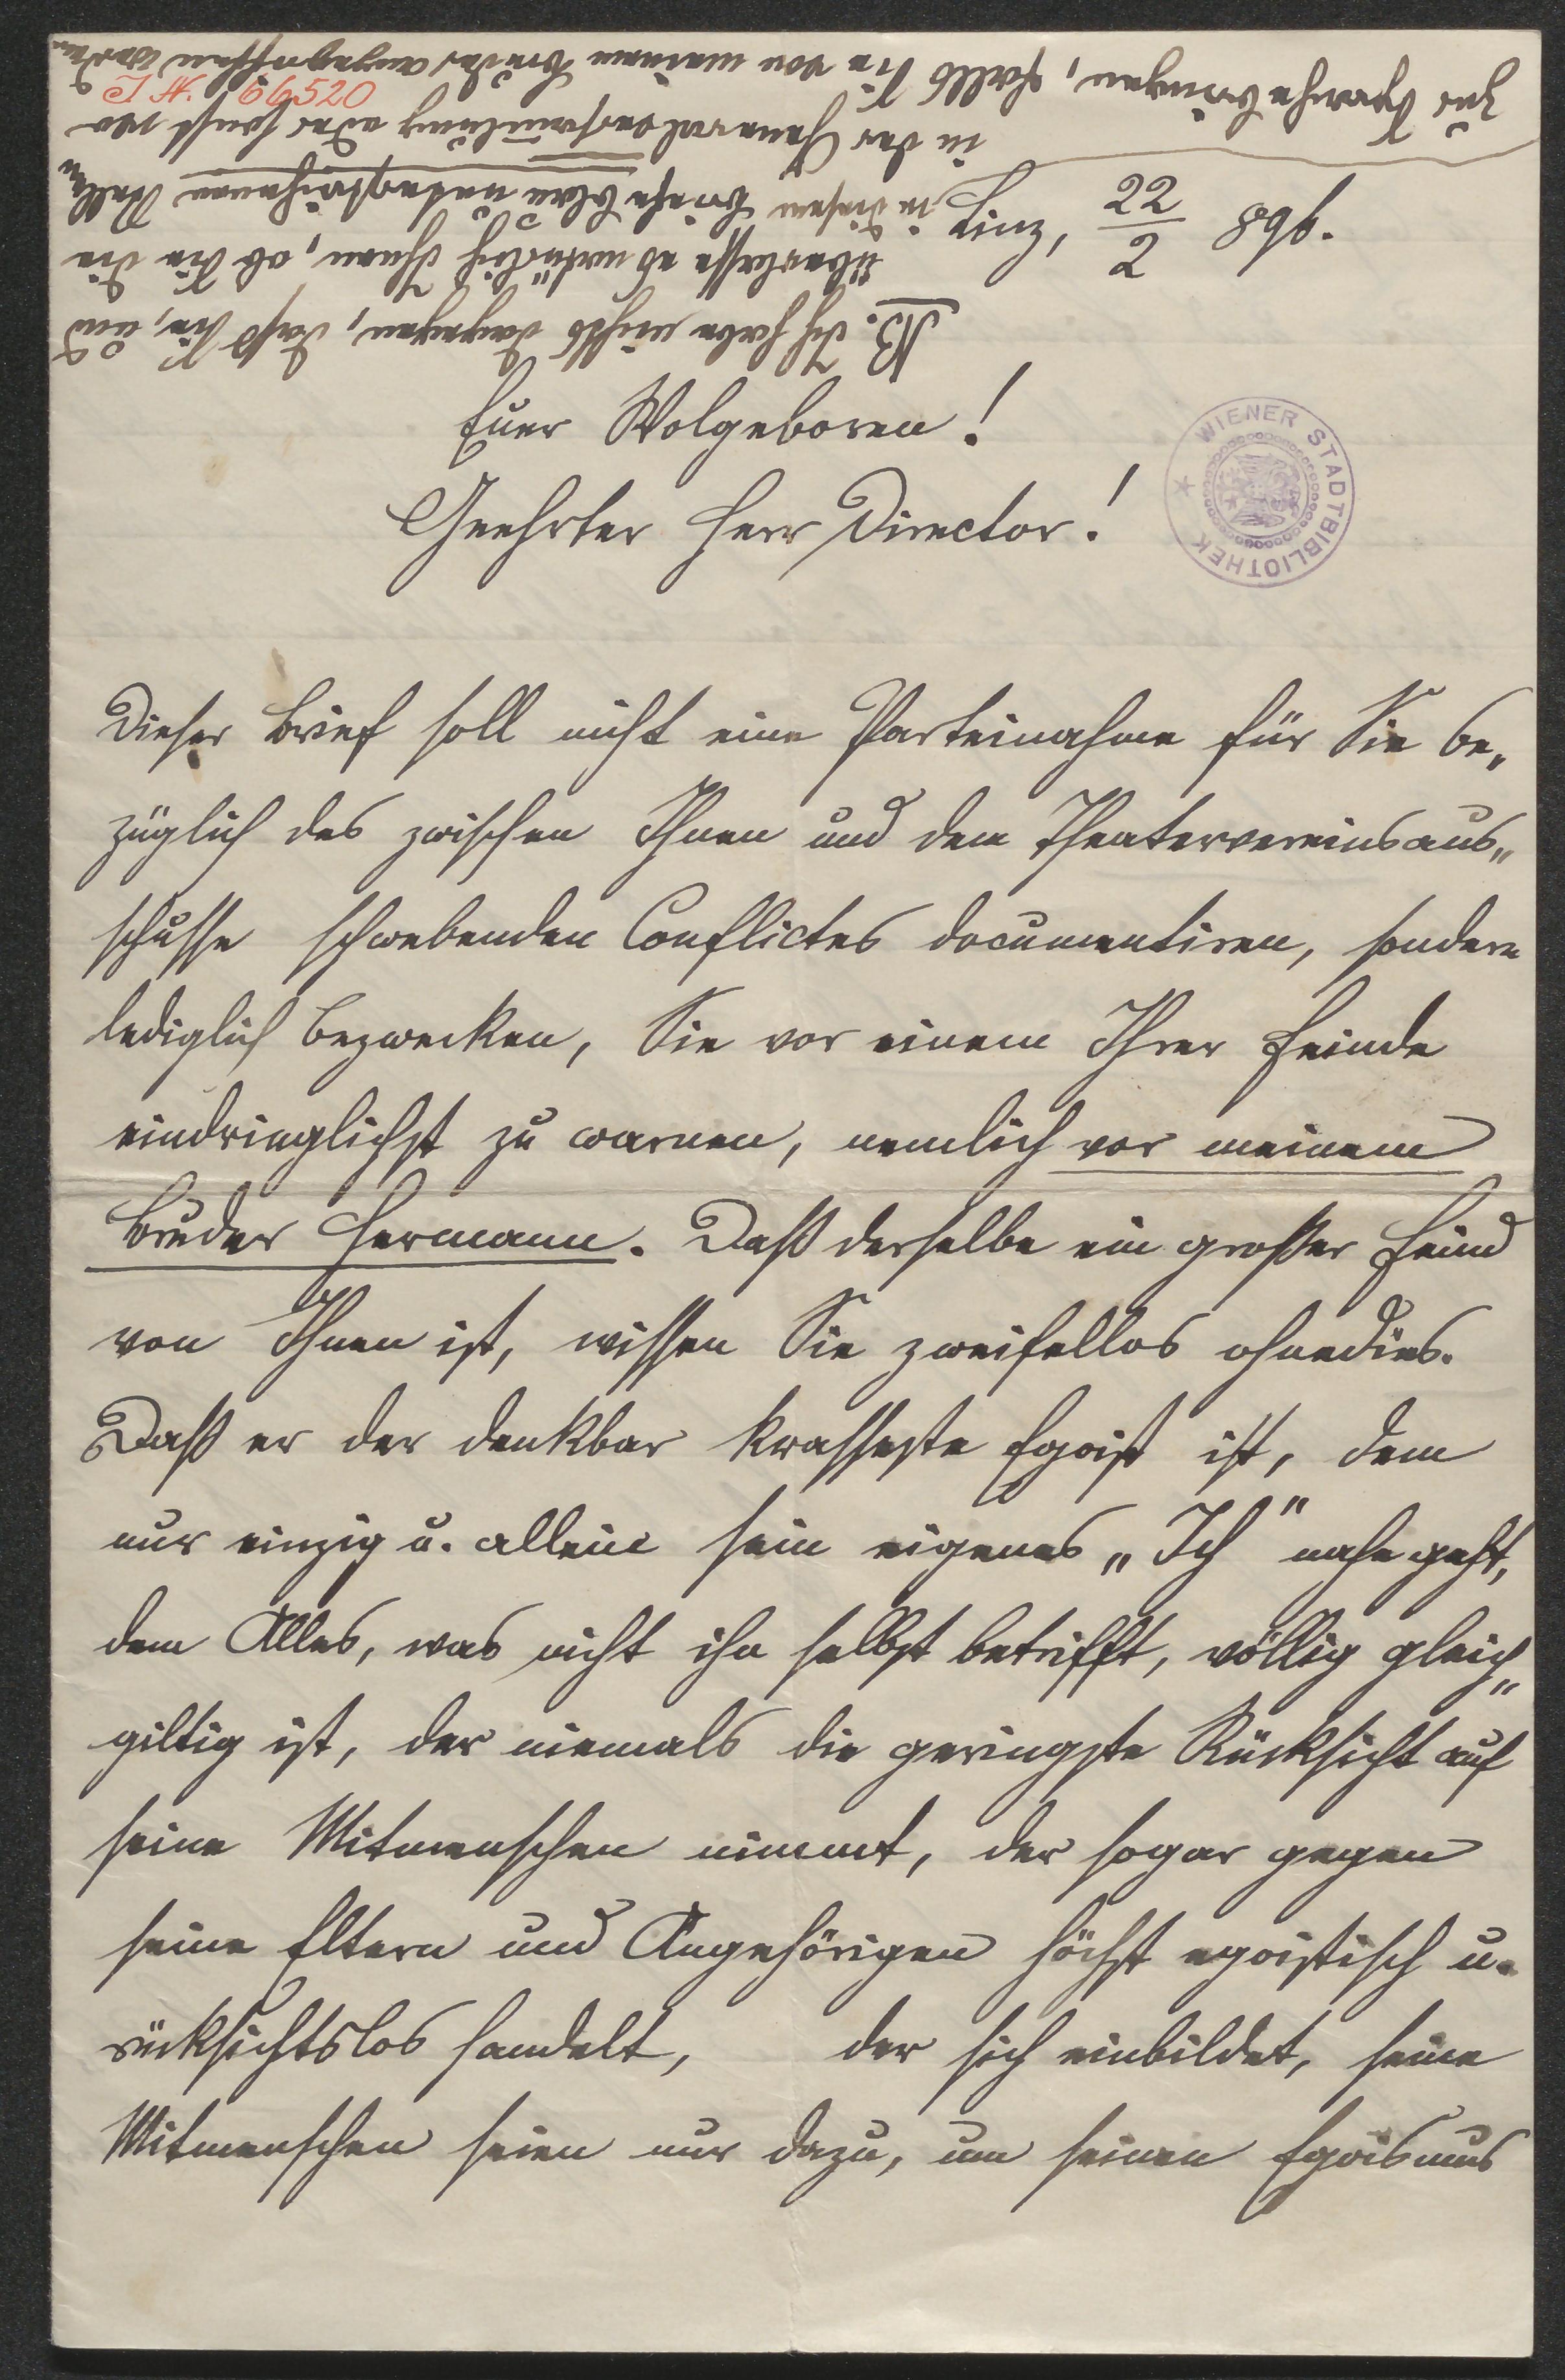 I. N. 66520
Linz, 22/2 896.
Euer Wolgeboren!
Geehrter Herr Director!
WIENER STADTBIBLIOTHEK
Dieser Brief soll nicht eine Parteinahme für Sie be„
züglich des zwischen Ihnen und dem Theatervereinsaus„
schusse schwebenden Conflictes documentiren, sondern
lediglich bezwecken, Sie vor einem Ihrer Feinde
eindringlichst zu warnen, nemlich vor meinem
Bruder Hermann. Daß derselbe ein großer Feind
von Ihnen ist, wissen Sie zweifellos ohnedies.
Daß er der denkbar krasseste Egoist ist, dem
nur einzig u. allein sein eigenes „Ich" nahe geht,
dem Alles, was nicht ihn selbst betrifft, völlig gleich„
giltig ist, der niemals die geringste Rücksicht auf
seine Mitmenschen nimmt, der sogar gegen
seine Eltern und Angehörigen höchst egoistisch u.
rücksichtslos handelt, der sich einbildet, seine
Mitmenschen seien nur dazu, um seinen Egoismus
NB. Ich habe nichts dagegen, daß Sie, und
überlasse es natürlich Ihnen, ob Sie die
in diesem Briefe blau unterstrichenen Stellen
in der Generalversammlung oder sonst wo
zur Sprache bringen, falls Sie von meinem Bruder angegriffen werden